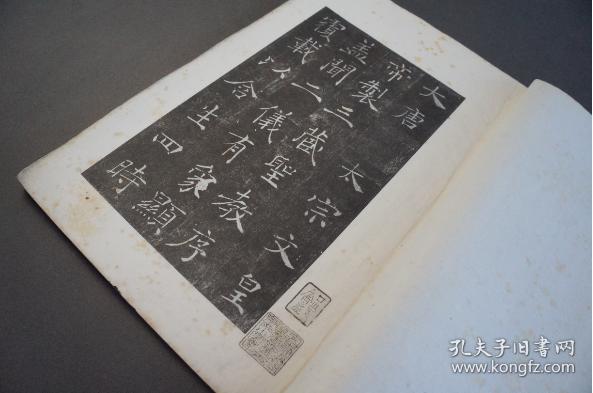 大唐太宗文皇
帝製三藏聖教序
盖聞二儀有象顯
覆載以含生四時
孔夫子旧书网
www.kongfz.com